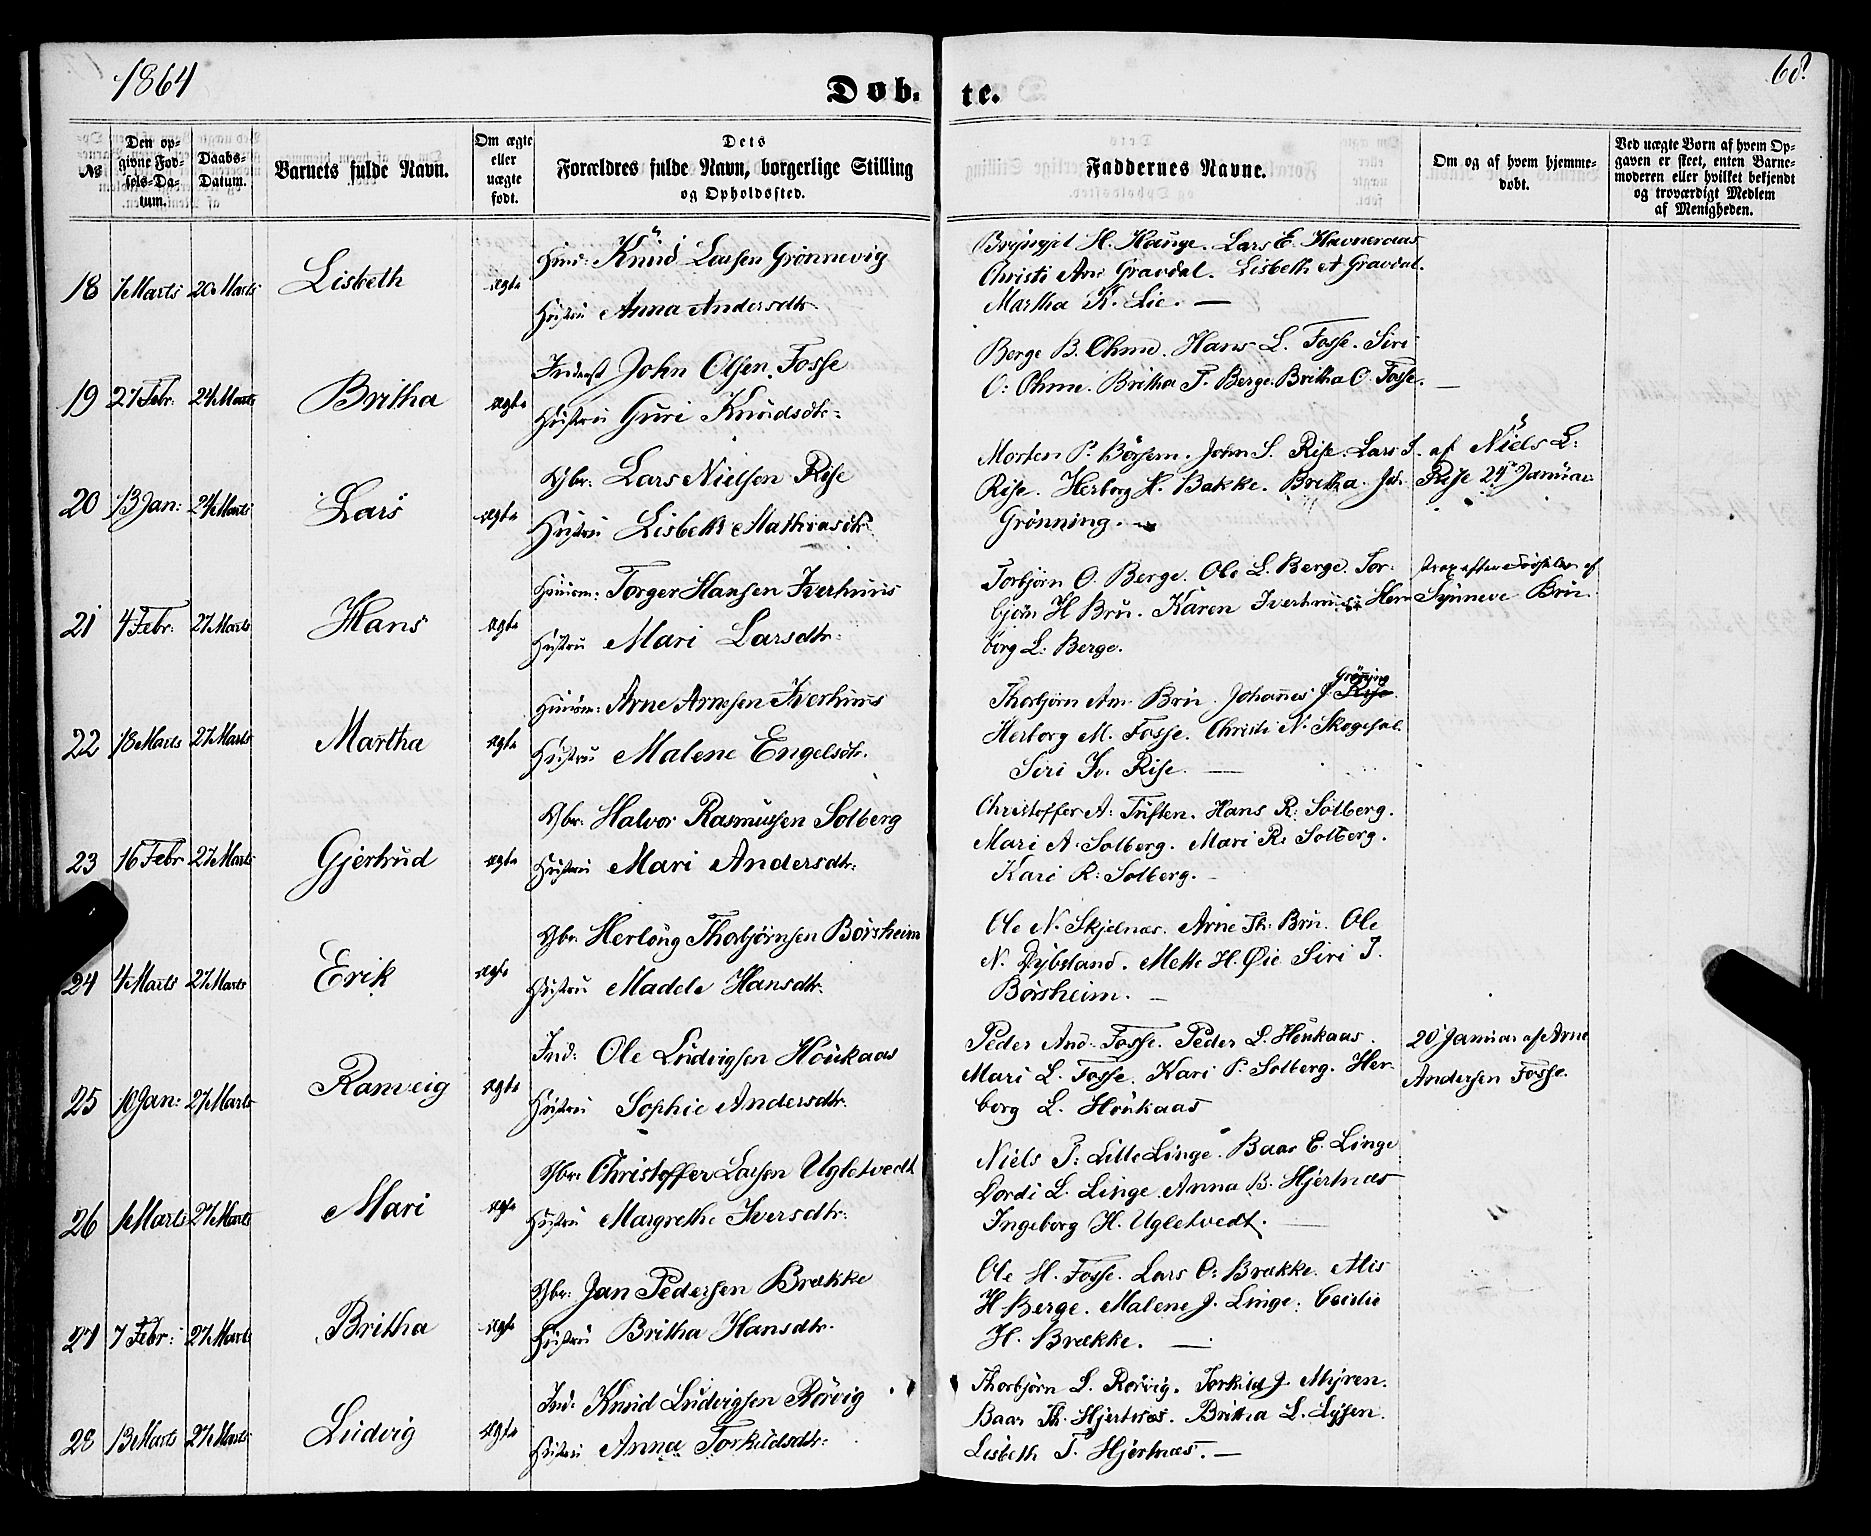 1864
68
Døb. te.
No
Den op-
givne Fød-
sels-Da-
tum.
Daabs-
Datum.
Barnets fulde Navn.
Om ægte
eller
uægte
født.
Dets
Forældres fulde Navn, borgerlige Stilling
og Opholdssted.
Faddernes Navne.
Om og af hvem hjemme-
døbt.
Ved uægte Børn af hvem Op-
gaven er skeet, enten Barne-
moderen eller hvilket bekjendt
og troværdigt Medlem
af Menigheden.
18 7 Marts 20 Marts Lisbeth ægte
Knud Larsen Grønnevig
Hustru Anna Andersdtr.
H. Hauge. Lars E.
Christi Gravdal. Lisbeth A Gravdal.
Martha K. Lie. —
19 27 Febr: 24 Marts Britha ægte
John Olsen Fosse
Hustru Guri Knudsdtr:
Berge B. Ohme. Hans L. Fosse. Siri
O: Ohme. Britha T. Berge. Britha O. Fosse. —
20 13 Jan: 24 Marts Lars ægte
Gbr: Lars Nielsen Rise
Hustru Lisbeth Mathiasdtr.
Morten P. Børsem. John S. Rise. Lars I.
Rise. Herborg H. Bakke. Britha
Grønning. —
af Niels L:
Rise 24 Januar
21 4 Febr: 27 Marts Hans ægte
Huusm: Torger Hansen Iverhuus
Hustru Mari Larsdtr:
Torbjørn O. Berge. Ole L. Berge. Tor-
bjørn H Bru. Karen Iverhuus. Her-
borg L. Berge.
strax efter Fødselen af
Synneve Bru.
22 18 Marts 27 Marts Martha ægte
Huusm: Arne Arnesen Iverhuus
Hustru Malene Engelsdtr.
Thorbjørn Am. Bru. Johannes J. Rise Grønning.
Herborg M. Fosse. Christi N.
Siri Iv. Rise. —
23 16 Febr 27 Marts Gjertrud ægte
Gbr: Halvor Rasmussen Solberg
Hustru Mari Andersdtr:
Christoffer A: Tufsten. Hans R: Solberg.
Mari A. Solberg. Mari R. Solberg.
Kari R: Solberg. —
24 4 Marts 27 Marts Erik ægte
Gbr. Herlaug Thorbjørnsen Børsheim
Hustru Madele Hansdtr.
Ole N. Skjelnæs. Arne Th: Bru. Ole
N. Dybsland. Mette H. Øie Siri I.
Børsheim. —
25 10 Jan: 27 Marts Ranveig ægte
Ind: Ole Ludvigsen Houkaas
Hustru Sophie Andersdtr.
Peder And. Fosse. Peder L. Houkaas.
Mari L. Fosse. Kari P. Solberg. Her-
borg L. Houkaas
20 Januar af Arne
Andersen Fosse.
26 1 Marts 27 Marts Mari ægte
Gbr: Christoffer Larsen Ugletvedt
Hustru Margrethe Iversdtr:
Niels T: Lille Linge. Baar E. Linge
Dordi L. Linge. Anna B. Hjertnæs
Ingeborg H. Ugletvedt. —
27 7 Febr: 27 Marts Britha ægte
Gbr: Jan Pedersen Brække
Hustru Britha Hansdtr.
Ole H. Fosse. Lars O: Brække.
H Berge. Malene J. Linge.
H. Brække. —
28 13 Marts 27 Marts Ludvig ægte
Ind: Knud Ludvigsen Rørvig
Hustru Anna Torkildsdtr:
Thorbjørn L. Rørvig. Torkild J. Myren.
Baar Th. Hjertnæs. Britha L. Lyssen.
Lisbeth T. Hjertnæs. —